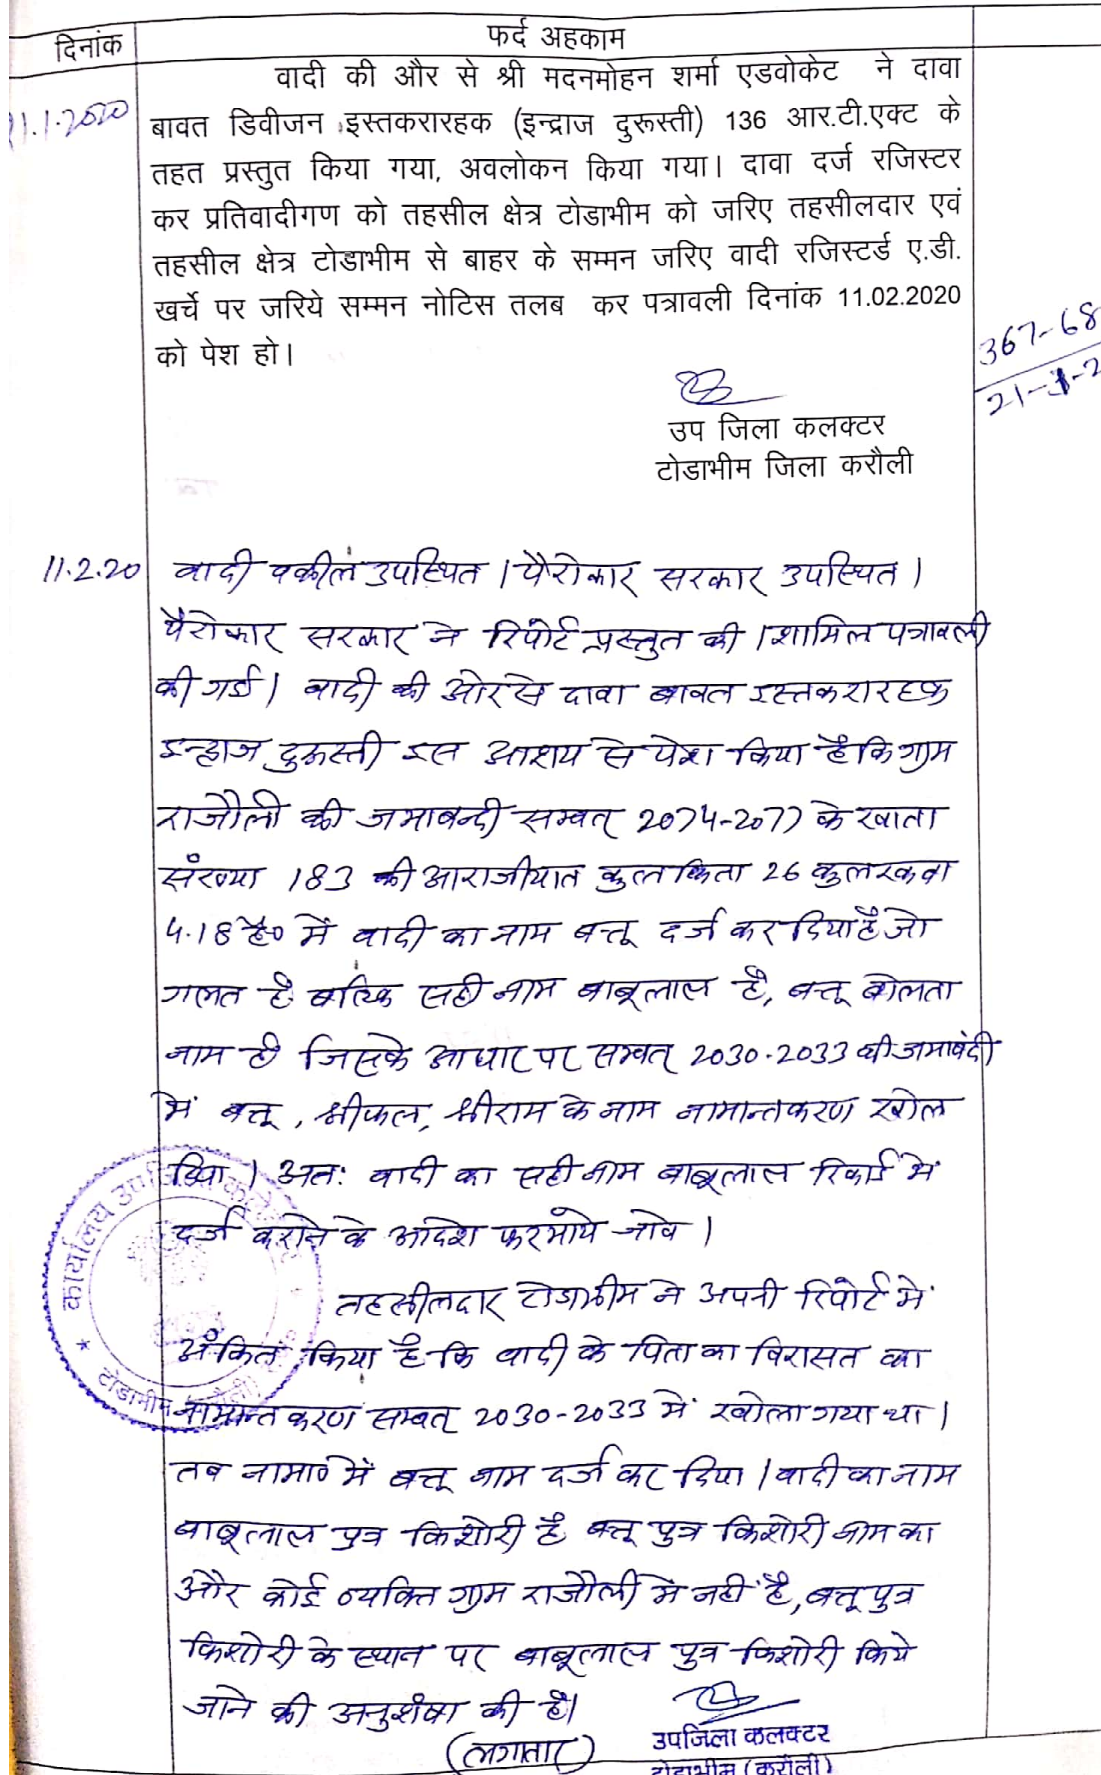 दिनांक
फर्द अहकाम
वादी की और से श्री मदनमोहन शर्मा एडवोकेट ने दावा
बावत डिवीजन इस्तकरारहक (इन्द्राज दुरूस्ती) 136 आर.टी.एक्ट के
तहत प्रस्तुत किया गया, अवलोकन किया गया। दावा दर्ज रजिस्टर
कर प्रतिवादीगण को तहसील क्षेत्र टोडाभीम को जरिए तहसीलदार एवं
तहसील क्षेत्र टोडाभीम से बाहर के सम्मन जरिए वादी रजिस्टर्ड ए.डी.
खर्चे पर जरिये सम्मन नोटिस तलब कर पत्रावली दिनांक 11.02.2020
को पेश हो।
367-68
उप जिला कलक्टर
टोडाभीम जिला करौली
11.2.20 वादी वकील उपस्थित । पैरोकार सरकार उपस्थित ।
पैरोकार सरकार ने रिपोर्ट प्रस्तुत की । शामिल पत्रावली
की गई । वादी की ओर से दावा बावत इस्तकरारहक
इन्द्राज दुरूस्ती इस आशय से पेश किया है कि ग्राम
राजौली की जमाबन्दी सम्वत् 2074-2077 के खाता
संख्या 183 की आराजीयात कुल किता 26 कुल रकवा
4.18 है० में वादी का नाम बत्तू दर्ज कर दिया है जो
गलत है बल्कि सही नाम बाबूलाल है, बत्तू बोलता
नाम है जिसके आधार पर सम्वत् 2030-2033 की जमाबंदी
में बत्तू, श्रीफल, श्रीराम के नाम नामान्तकरण खोल
दिया । अतः वादी का सही नाम बाबूलाल रिकार्ड में
दर्ज कराने के आदेश फरमाये जावे ।
तहसीलदार टोडाभीम ने अपनी रिपोर्ट में
अंकित किया है कि वादी के पिता का विरासत का
नामान्तकरण सम्वत् 2030-2033 में खोला गया था ।
तब नामा० में बत्तू नाम दर्ज कर दिया । वादी का नाम
बाबूलाल पुत्र किशोरी है बत्तू पुत्र किशोरी नाम का
और कोई व्यक्ति ग्राम राजौली में नहीं है, बत्तू पुत्र
किशोरी के स्थान पर बाबूलाल पुत्र किशोरी किये
जाने की अनुशंषा की है।
(लगातार)
उपजिला कलक्टर
टोडाभीम (करौली)
कार्यालय
टोडाभीम (करौली)